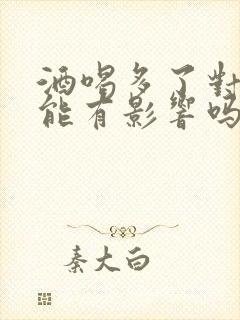 酒喝多了對
能有影響嗎
秦大白